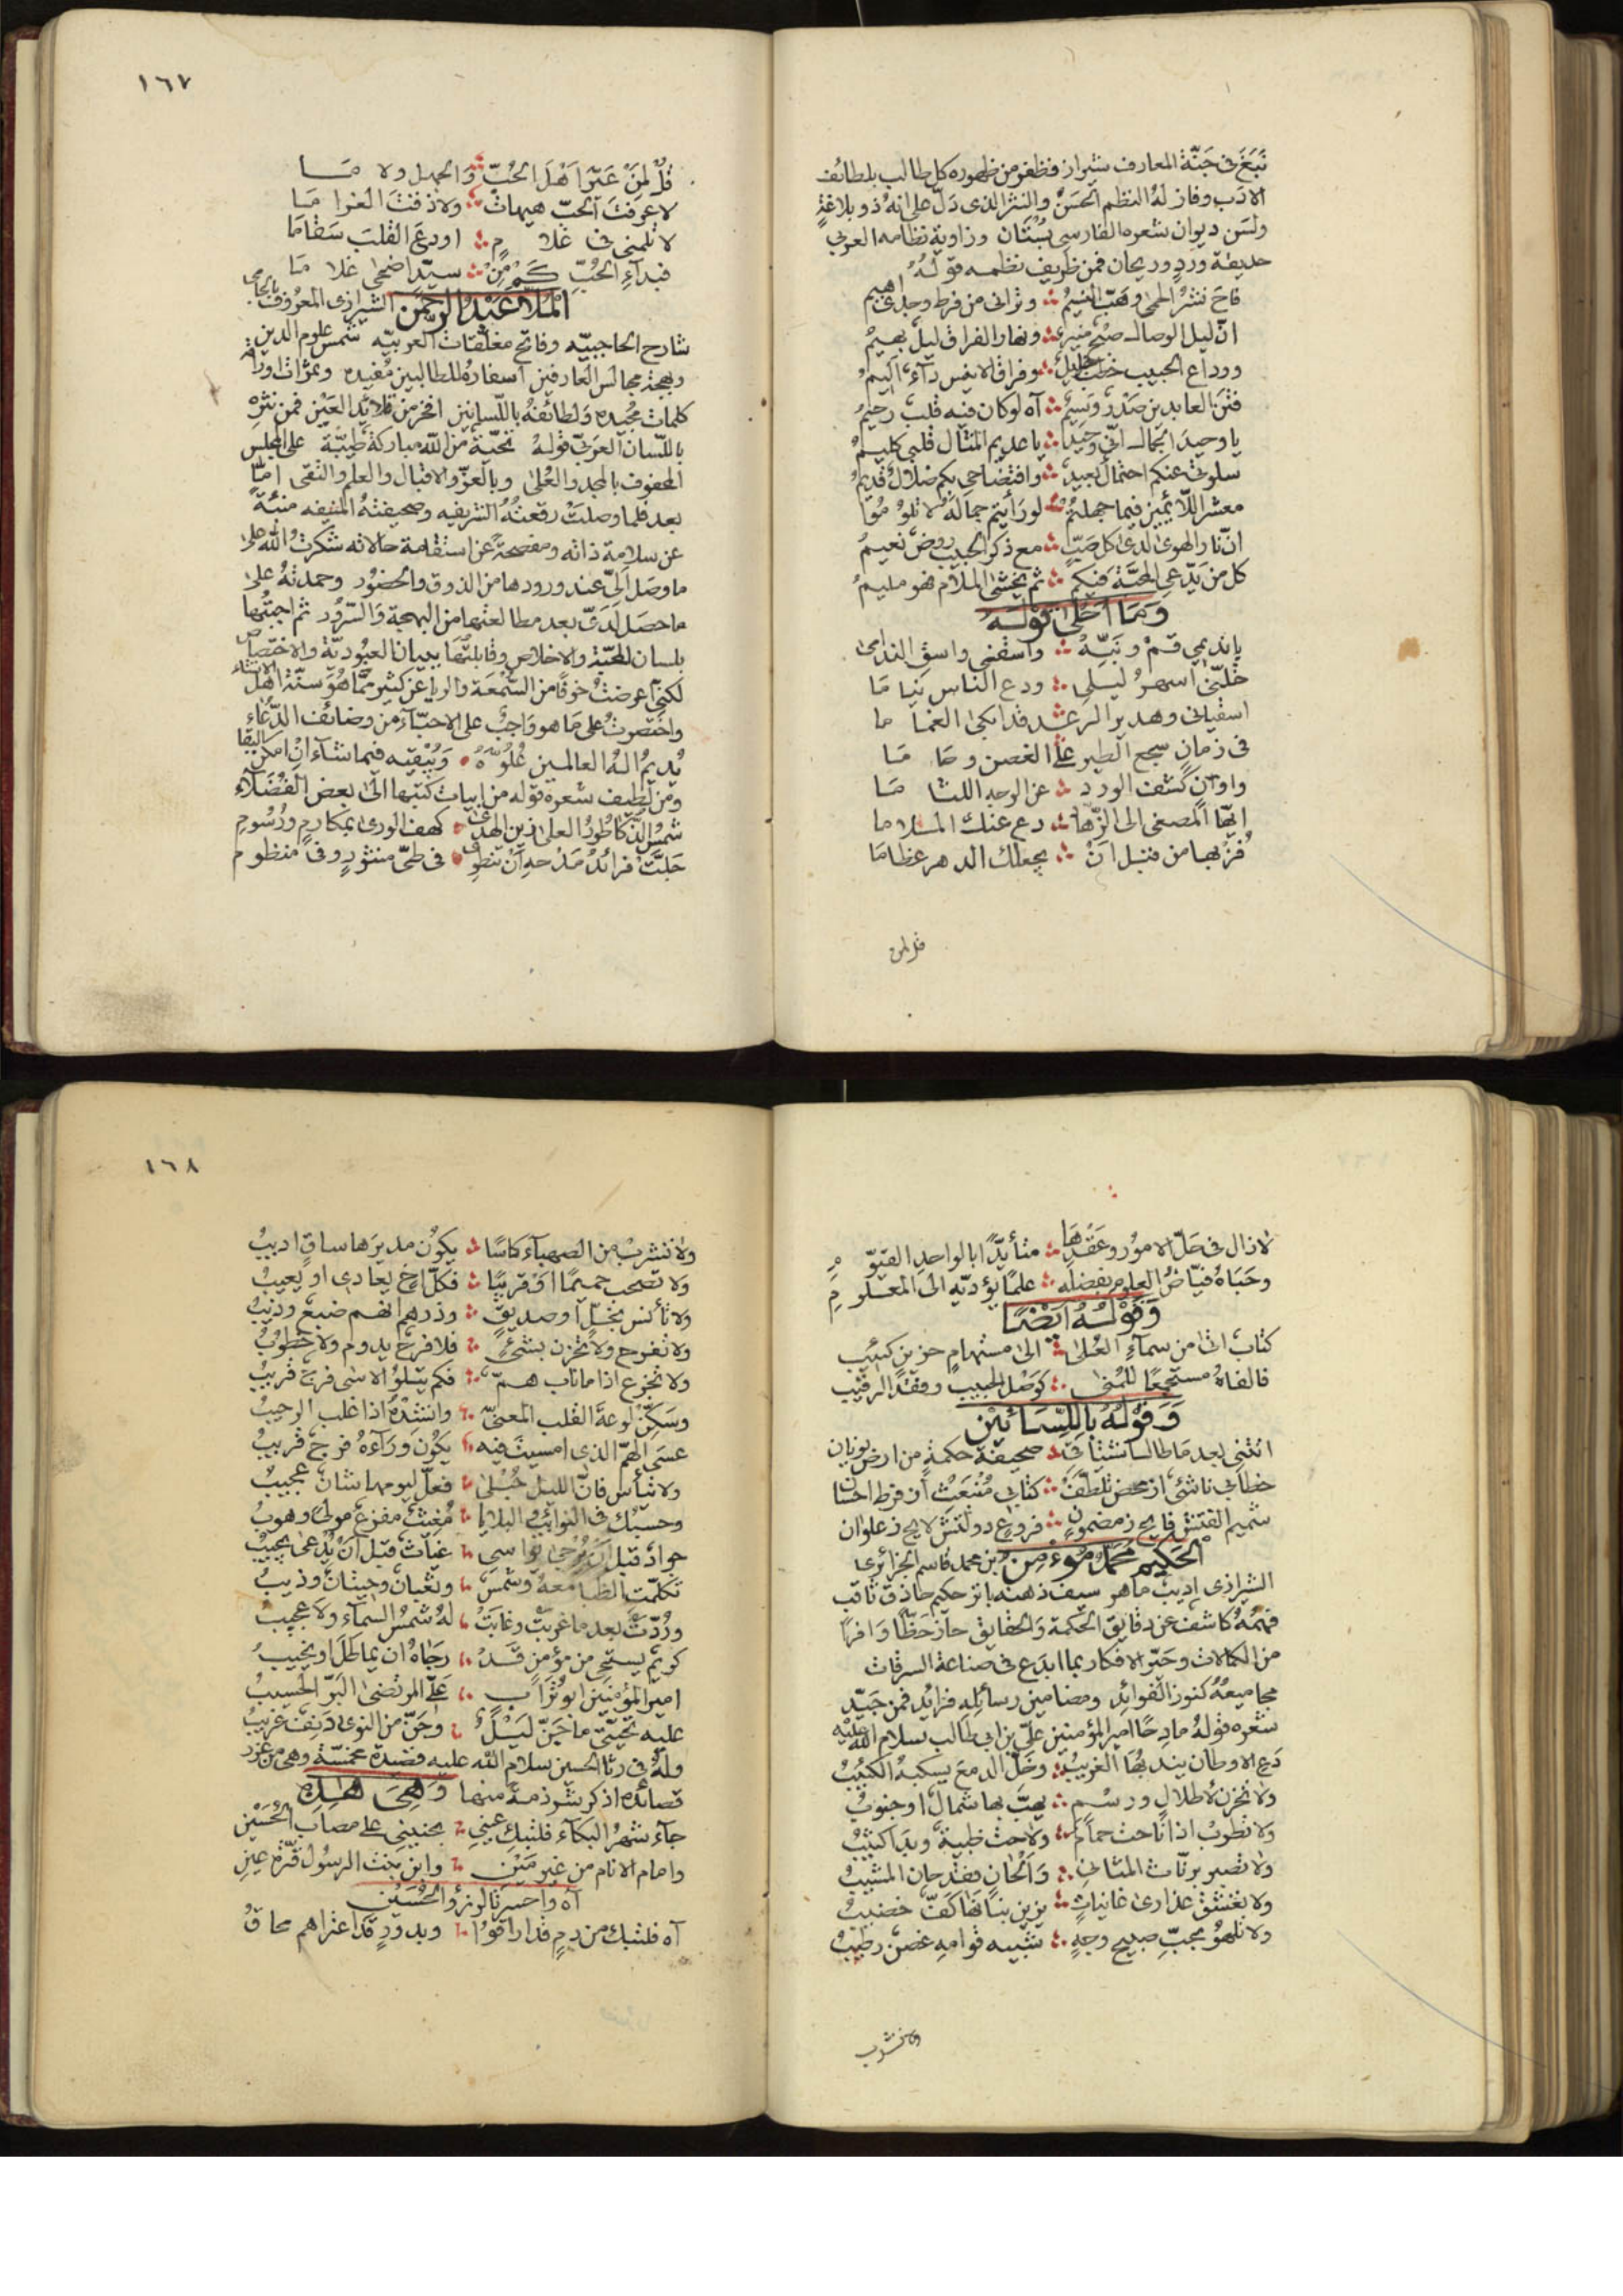 نَبَغَ فى جَنّة المعارف بشيراز فظفر من ظهوره كل طالب بلطائف
الادب وفاز له النظم الحسن والنثر الذى دلّ على انه ذو بلاغة
ولسن ديوان شعره الفارسى بُسْتَان وزاوية نظامه العربى
حديقة ورد وريحان فمن ظريف نظمه قوله
فاح نشرُ الحمى وهبّ النسيمُ وترانى من فرط وجدى اهيم
انّ ليل الوصال صُبْح منيرٌ ونهار الفراق ليلٌ بهيمُ
ووداع الحبيب خطب جليلٌ وفراق الانيس دآء اليمُ
فتن العابدين صدر وسيمٌ آه لو كان فيه قلب رحيمُ
يا وحيد الجمال انّى وحيدٌ يا عديم المثال قلبى كليمُ
سلوتى عنكم احتمال بعيدٌ وافتضاحى بكم ضلالٌ قديمُ
معشر اللّائمين فيما جهلتمُ لو رأيتم جماله لا تلومُوا
انّ نار الهوى لدى كل صَبّ مع ذكر الحبيب روض نعيمُ
كل من يدّعى المحبّة فيكم ثم يخشى الملام فهو مليمُ
وَمَا اَحْلىٰ قَوْلَهُ
يا نديمى قمْ ونَبّهْ واسقنى واسق الندامى
خلّنى اسهرُ ليلى ودع الناس نيا مَا
اسقيانى وهدير الرعد قد ابكى الغما ما
فى زمان سجع الطير على الغصن وحَا مَا
واوان كشف الورد عن الوجه اللثا مَا
ايّها المصغى الى الزّهّاد دع عنك الملا ما
فُز بها من قبل انْ يجعلك الدهر عظامَا
قل لمن
١٦٧
قُلْ لِمَنْ عَيّرَ اَهْلَ الحُبّ وَالجهل ولا مَا
لا عرفتَ الحبّ هيهاتَ ولا ذقتَ الغرا مَا
لا تلمنى فى غلا مٍ اودعَ القلبَ سَقَامَا
فبدآء الحُبّ كَمْ مِنْ سيّد اضحى غلا مَا
المُلّا عَبْدُ الرّحْمٰن الشيرازى المعروف بالجامى
شارح الحاجبيّه وفاتح مغلّقات العربيّه شمس علوم الدين
وبهجة مجالس العارفين اسفاره للطالبين مُفيده وثمرات اوراق
كلمات مجيده ولطائفه باللسانين افخر من قلائد العَيْن فمن نثره
باللّسان العربىّ قوله تحيّة من الله مباركة طيّبة على المجلس
المحفوف بالمجد والعُلىٰ وبالعزّ والاقبال والعلم والتقى امّا
بعد فلما وصلتْ رقعتُه الشريفه وصحيفتهُ المنيفه منبئة
عن سلامة ذاته ومفصحةً عن استقامة حالاته شكرتُ الله على
ما وصَل الىّ عند ورودها من الذوق والحضُور وحمدتهُ على
ما حصَل لَدَىّ بعد مطالعتها من البهجة والسّرُور ثم اجبتُها
بلسان المحبّة والاخلاص وقابلتها ببيان العبُوديّة والاختصاص
لكنى اعرضتُ خوفًا من السُّمْعَة والريا عن كثير ممّا هُوَ سنّة اهل الانشاء
واختصرتُ على مَا هو وَاجبٌ على الاحبّآء من وضائف الدّعَاءِ
يُديمُ الهُ العالمين عُلُوّهُ وَيُبْقيه فيما شآء اِنْ امكن البقا
ومن لطيف شعره قوله من ابيات كتبها الى بعض الفُضَلآء
شمسُ الذكا طُودُ العلى زين الهدىٰ كهف الورىٰ بمكارم ورُسُوم
جَلّتْ فرائدُ مَدْحه اَنْ تنطوِى فى طىّ منثورٍ وفى منظوم
لا زال فى حَلّ الامُور وعَقْدِهَا متأيّدًا بالواحد القيّو مِ
وحَبَاهُ فيّاضُ العلوم بفضله علمًا يؤدّيه الى المعلو مِ
وَقَوْلُهُ اَيْضًا
كتاب اتى من سمآء العُلىٰ الى مستهام حزين كئيب
فالفاهُ مستجمعًا للمُنى كوَصْل الحبيب وفقْد الرقيب
وَقَوْلُهُ بِاللّسَانَيْن
اتتنى بعد مَا طال اشتياقى صحيفة حكمة من ارض يونان
خطابى ناشئ از محض تلطّف كتابى مُنبَعَث از فرط احسان
شميم القتش فايح ز مضمون فروغ دولتش لايح ز عنوان
الحَكِيم مُحَمّد مُؤمِنْ بن محمد قاسم الجزائرى
الشيرازى اديبٌ ماهر سيف ذهنه باتر حكيم حاذق ثاقب
فهمُهُ كاشف عن دقايق الحكمة والحقايق حآز حَظّا وَافرًا
من الكمالات وحَيّر الافكار بما ابدَع فى صناعة السرقات
مجاميعهُ كنوز الفوائد ومضامين رسائله فرايد فمن جَيّد
شعره قولهُ مادحًا امير المؤمنين علىّ بن ابى طالب سلام الله عليه
دَع الاوطان يندبُهَا الغريبُ وخَلّ الدمعَ يسكبه الكئيبُ
ولا تحزن لاطلال ورسْم يهبّ بها شمال او جنوبُ
ولا تطرب اذا ناحت حمامٌ ولاحت ظبية وبدَا كثيبُ
ولا تصبر برنّات المثانى وَاَلْحَان فقد حان المشيبُ
ولا تعشق عذارىٰ غانيات يزين بنانَهَا كفّ خضيبُ
ولا تلهُو بحبّ صبيح وجهٍ شبيه قوامه غصن رطيبُ
ولا تشرب
١٦٨
ولا تشربْ من الصهبآء كاسًا يكوُن مديرَها ساقٍ اديبُ
ولا تصحب حميمًا او قريبًا فكلّ اخ يعادى او يعيبُ
ولا تأنس بخلّ او صديق وذرهم انهم ضبع وذيبُ
ولا تفرح ولا تحزن بشئ فلا فرح يدوم ولا خطوبُ
ولا تجزع اذا ما ناب همّ فكم يتلوُ الاسى فرج قريبُ
وسَكّنْ لوعة القلب المعنّى وانشدْهُ اذا غلب الوجيبُ
عسَى الهمّ الذى امسيتَ فيه يكُون ورَآءهُ فرجٌ قريبُ
ولا تيأس فانّ الليل حُبْلىٰ فعلّ ليومها شانٌ عجيبُ
وحسبُك فى النوائب والبلايا مُغيثٌ مفزع مولىً وهوبُ
جوادٌ قبل ان يُرجىٰ يواسى غياث قبل اَنْ يُدعىٰ يجيبُ
تكلّمت الظبا معهُ وشمسٌ وثعبان وحيتان وذيبُ
ورُدّتْ بعد ما غربتْ وغابتْ لهُ شمسُ السمآء ولا عجيبُ
كريم يستحى من مؤمن قَدْ رَجَاهُ ان يماطل او يخيبُ
اميرُ المؤمنين ابوُ تُرَاب علىُّ المرتضىٰ البَرّ الحسيبُ
عليه تحيّتى ما جَنّ لَيْلٌ وحَنّ من النوىٰ دَنِفٌ غريبُ
ولهُ فى رثا الحسين سلام الله عليه قصيدة مخمسّة وهى من غرر
قصائده اذكر شرذمة منها وَهِىَ هٰذِه
جآء شهرُ البكآء فلتبك عينى بحنينى على مصاب الحُسَيْن
وامام الانام من غير مَيْن وابن بنت الرسُول قُرّة عينِ
آه واحسرتا لرزؤ الحُسَيْن
آه فلتبك من دم قد اراقوا وبدور قد اعتراهم محاقُ